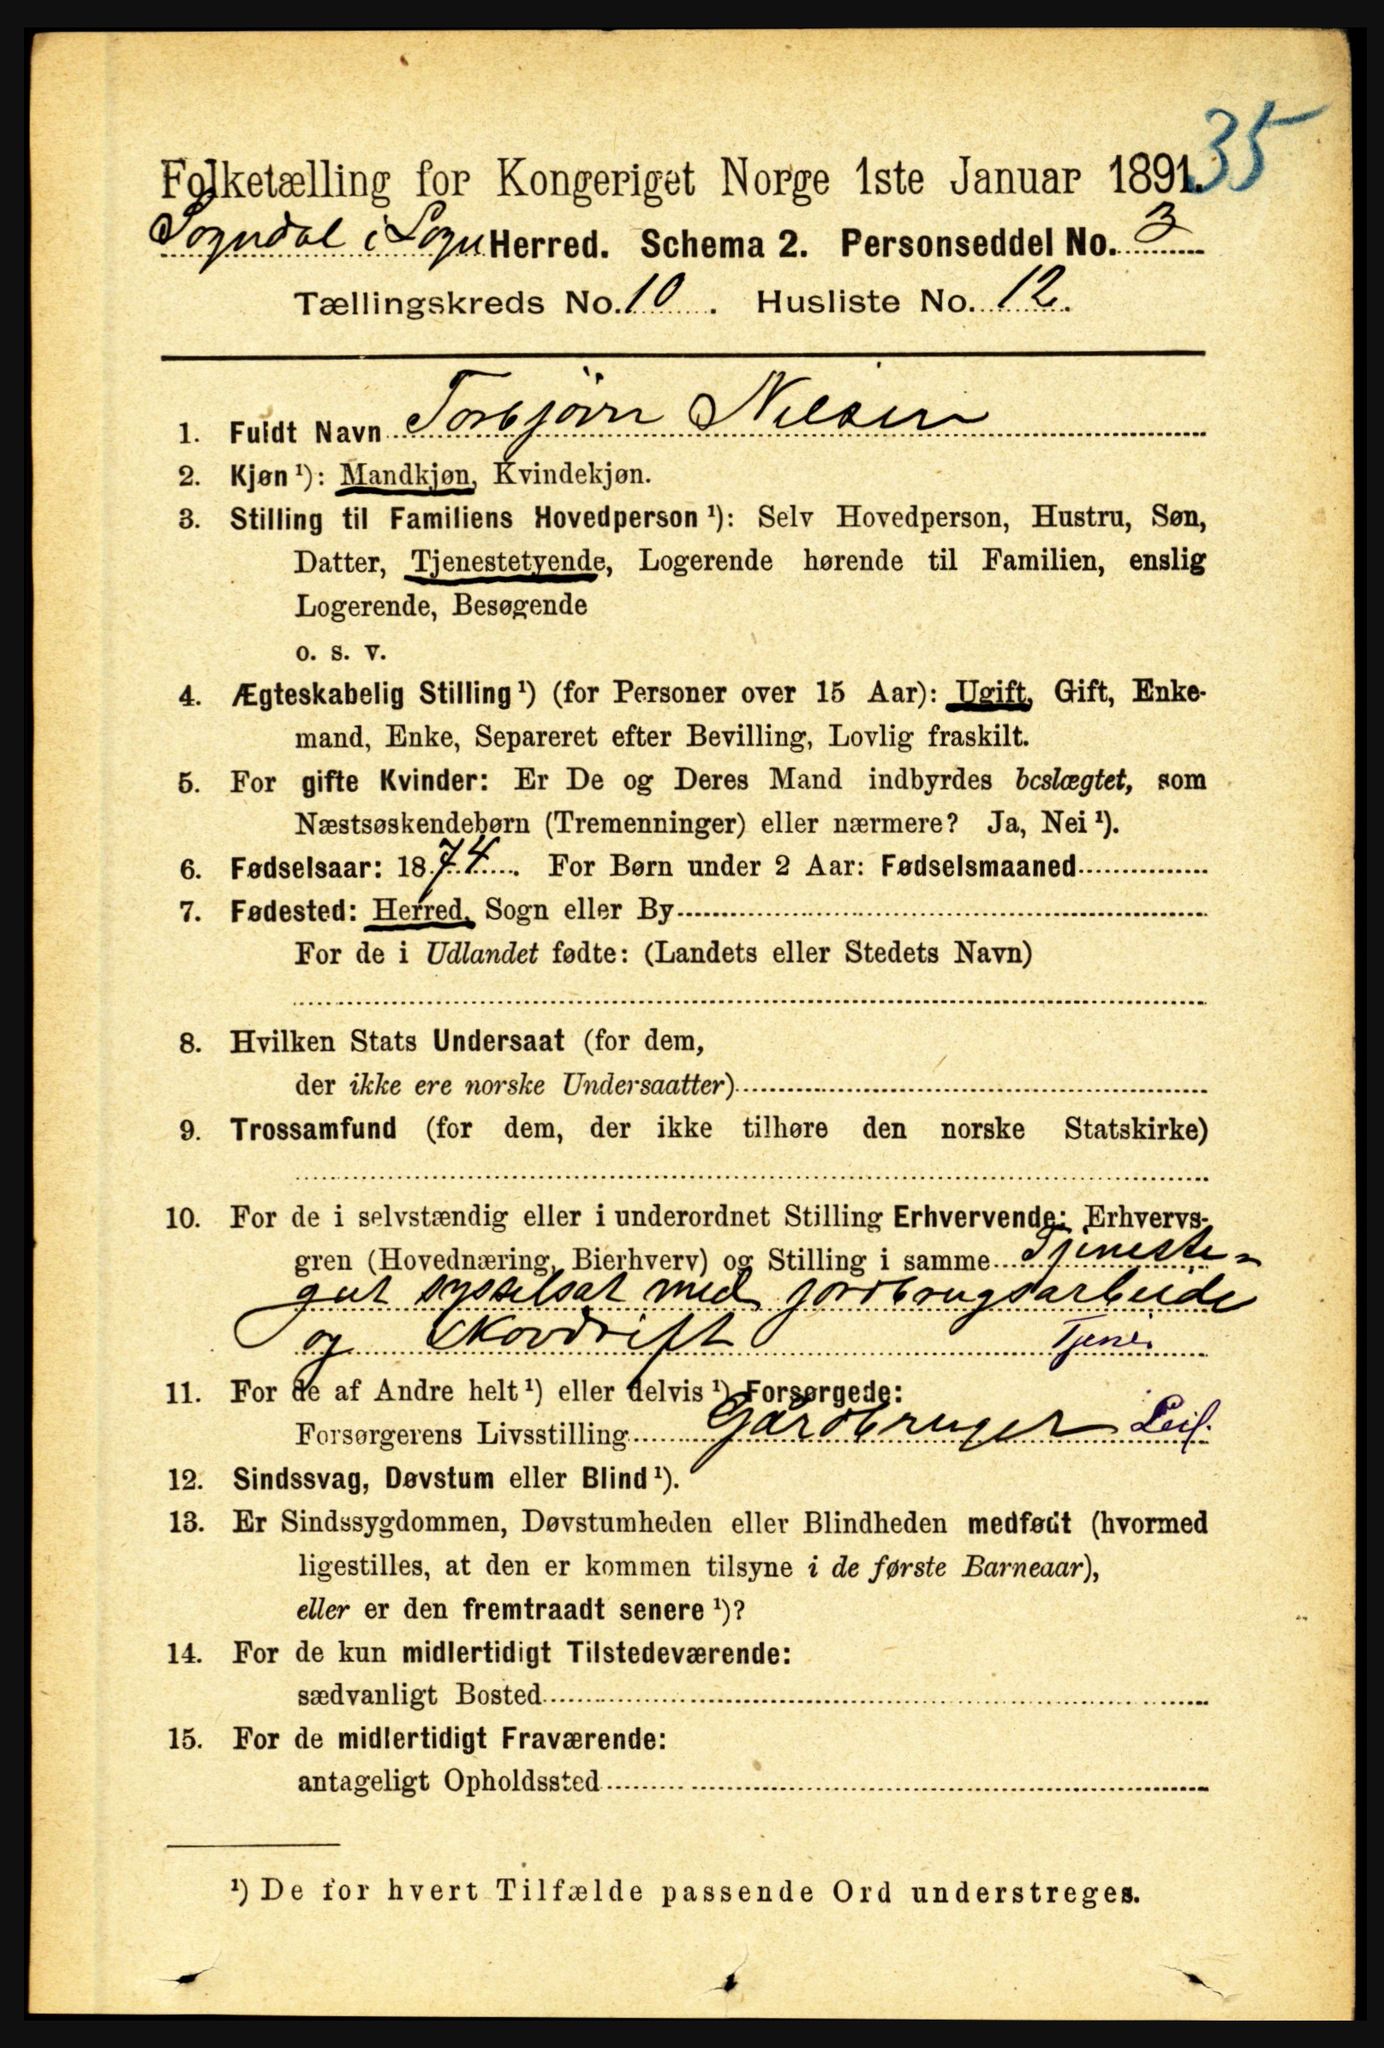 35
Folketælling for Kongeriget Norge 1ste Januar 1891.
Sogndal i Sogn Herred. Schema 2. Personseddel No. 3
Tællingskreds No. 10. Husliste No. 12.
1. Fuldt Navn Torbjörn Nilsen
2. Kjøn ¹): Mandkjøn, Kvindekjøn.
3. Stilling til Familiens Hovedperson ¹): Selv Hovedperson, Hustru, Søn,
Datter, Tjenestetyende, Logerende hørende til Familien, enslig
Logerende, Besøgende
o. s. v.
4. Ægteskabelig Stilling ¹) (for Personer over 15 Aar): Ugift, Gift, Enke-
mand, Enke, Separeret efter Bevilling, Lovlig fraskilt.
5. For gifte Kvinder: Er De og Deres Mand indbyrdes beslægtet, som
Næstsøskendebørn (Tremenninger) eller nærmere? Ja, Nei ¹).
6. Fødselsaar: 1874. For Børn under 2 Aar: Fødselsmaaned
7. Fødested: Herred, Sogn eller By
For de i Udlandet fødte: (Landets eller Stedets Navn)
8. Hvilken Stats Undersaat (for dem,
der ikke ere norske Undersaatter)
9. Trossamfund (for dem, der ikke tilhøre den norske Statskirke)
10. For de i selvstændig eller i underordnet Stilling Erhvervende: Erhvervs-
gren (Hovednæring, Bierhverv) og Stilling i samme Tjeneste-
gut sysselsat med jordbrugsarbeide
og Skovdrift Tjener
11. For de af Andre helt ¹) eller delvis ¹) Forsørgede:
Forsørgerens Livsstilling Gardbruger Leil.
12. Sindssvag, Døvstum eller Blind ¹).
13. Er Sindssygdommen, Døvstumheden eller Blindheden medfødt (hvormed
ligestilles, at den er kommen tilsyne i de første Barneaar),
eller er den fremtraadt senere ¹)?
14. For de kun midlertidigt Tilstedeværende:
sædvanligt Bosted
15. For de midlertidigt Fraværende:
antageligt Opholdssted
¹) De for hvert Tilfælde passende Ord understreges.